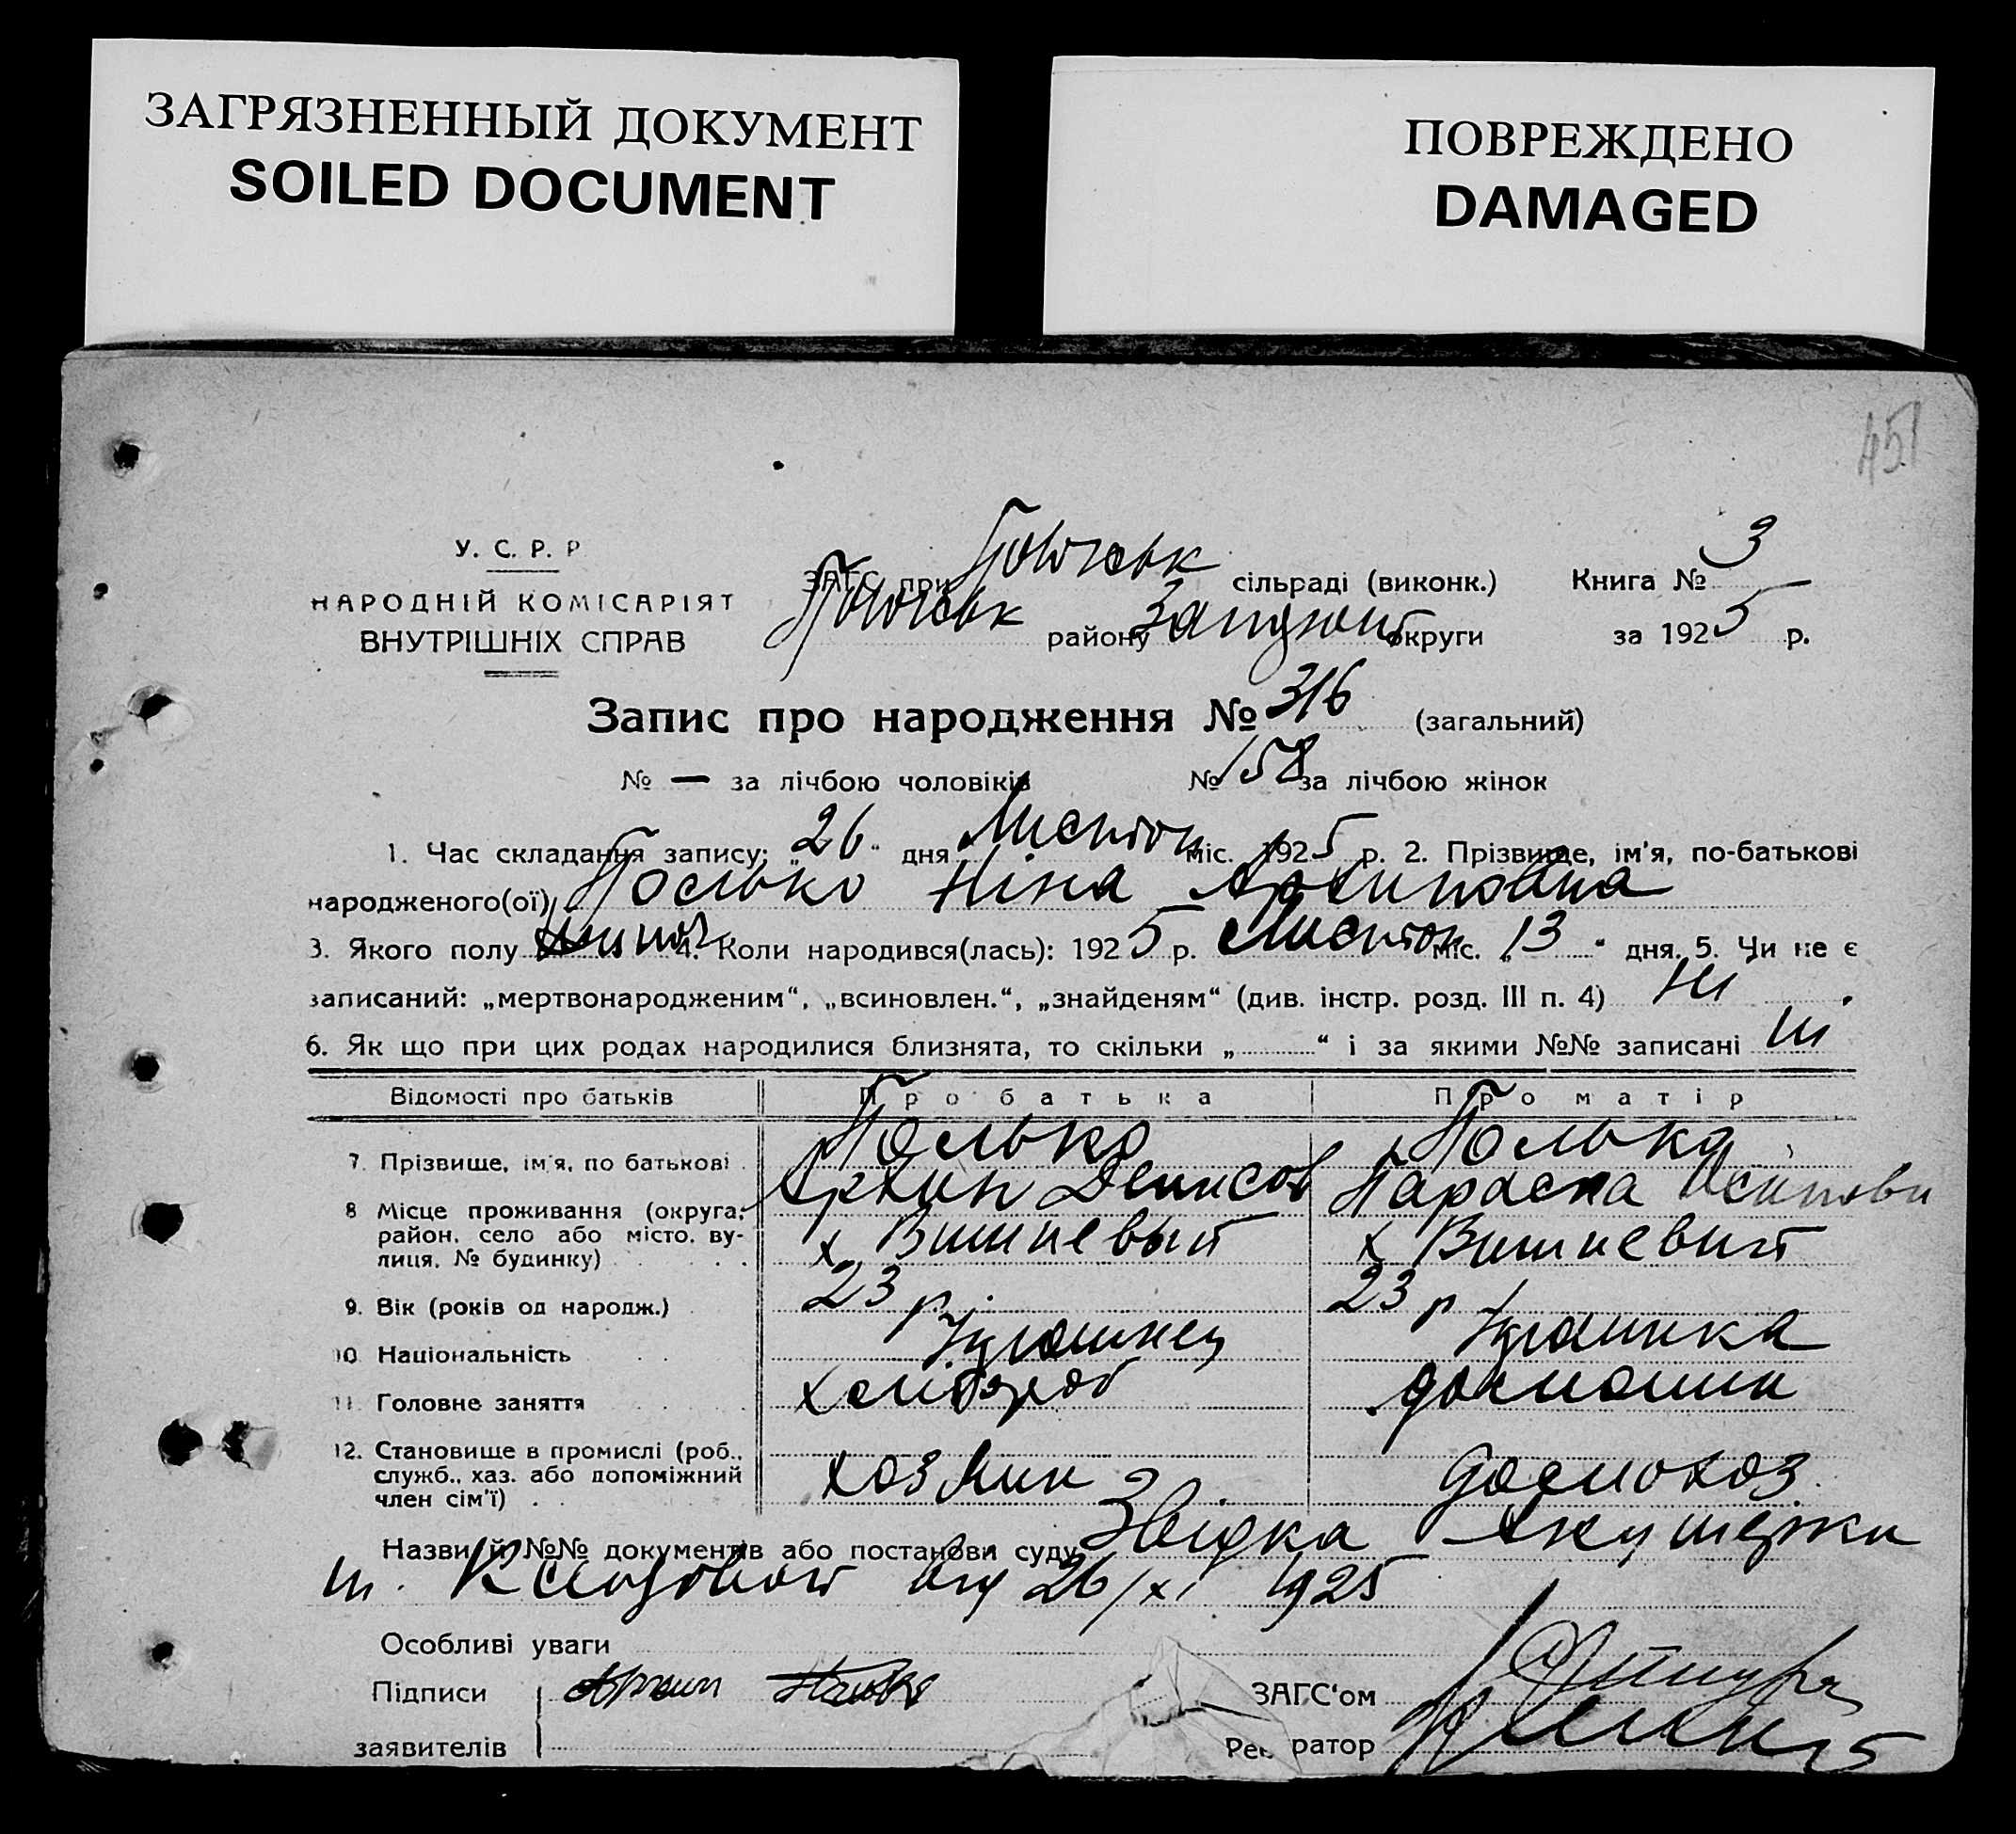 ЗАГРЯЗНЕННЫЙ ДОКУМЕНТ
SOILED DOCUMENT
ПОВРЕЖДЕНО
DAMAGED
451
У. С. Р. Р
НАРОДНІЙ КОМІСАРІЯТ
ВНУТРІШНІХ СПРАВ
ЗАГС при сільраді (виконк.) Книга № 3
району округи за 1925 р.
Запис про народження № 316 (загальний)
№ — за лічбою чоловіків № 158 за лічбою жінок
1. Час складання запису: „26“ дня Листоп міс. 1925 р. 2. Прізвище, ім'я, по-батькові
народженого(ої) Ніна Архиповна
3. Якого полу 4. Коли народився(лась): 1925 р. Листоп міс. „13“ дня. 5. Чи не є
записаний: „мертвонародженим“, „всиновлен.“, „знайденям“ (див. інстр. розд. III п. 4) Ні
6. Як що при цих родах народилися близнята, то скільки „ “ і за якими №№ записані
Відомості про батьків Про батька Про матір
7. Прізвище, ім'я, по батькові Полько Полька
Архип Денисов Параска Осиповн
8 Місце проживання (округа, район, село або місто, вулиця, № будинку) х Вишневый х Вишневый
9. Вік (років од народж.) 23 р. 23 р
10 Національність
11 Головне заняття хлібороб домашни
12. Становище в промислі (роб., служб., хаз. або допоміжний член сім'ї) хозяин домохоз.
Назви й №№ документів або постанови суду Звідка Акушерки
від 26/XI 1925
Особливі уваги
Підписи
заявителів
ЗАГС'ом
Реєстратор